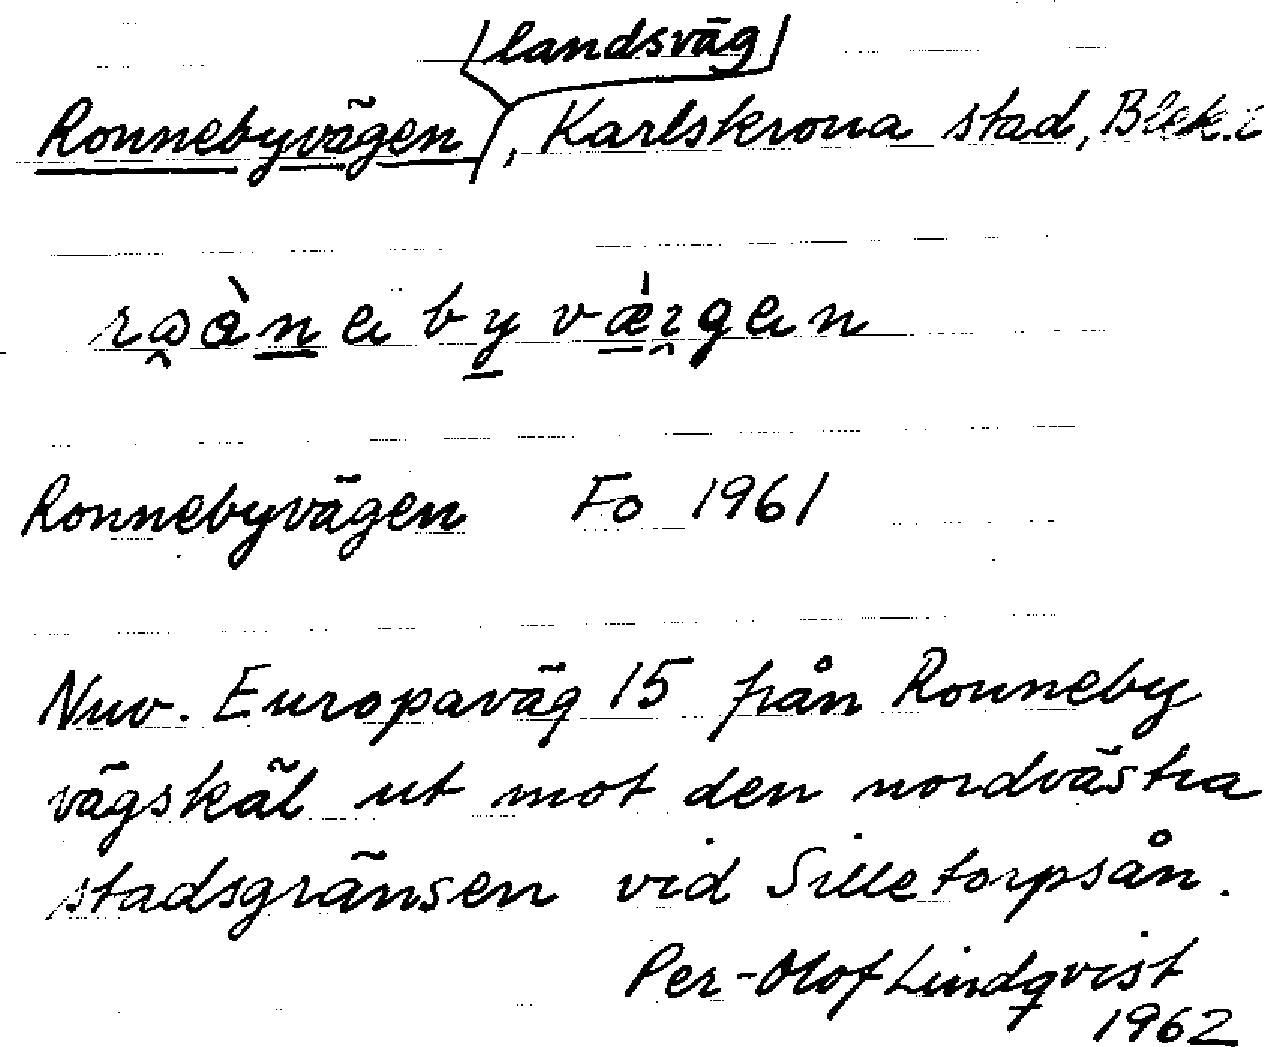 landsväg
Ronnebyvägen, Karlskrona stad, Blek.
Ronnebyvägen Fo 1961
Nuv. Europaväg 15 från Ronneby
vägskäl ut mot den nordvästra
stadsgränsen vid Silletorpsån.
Per-Olof Lindqvist
1962